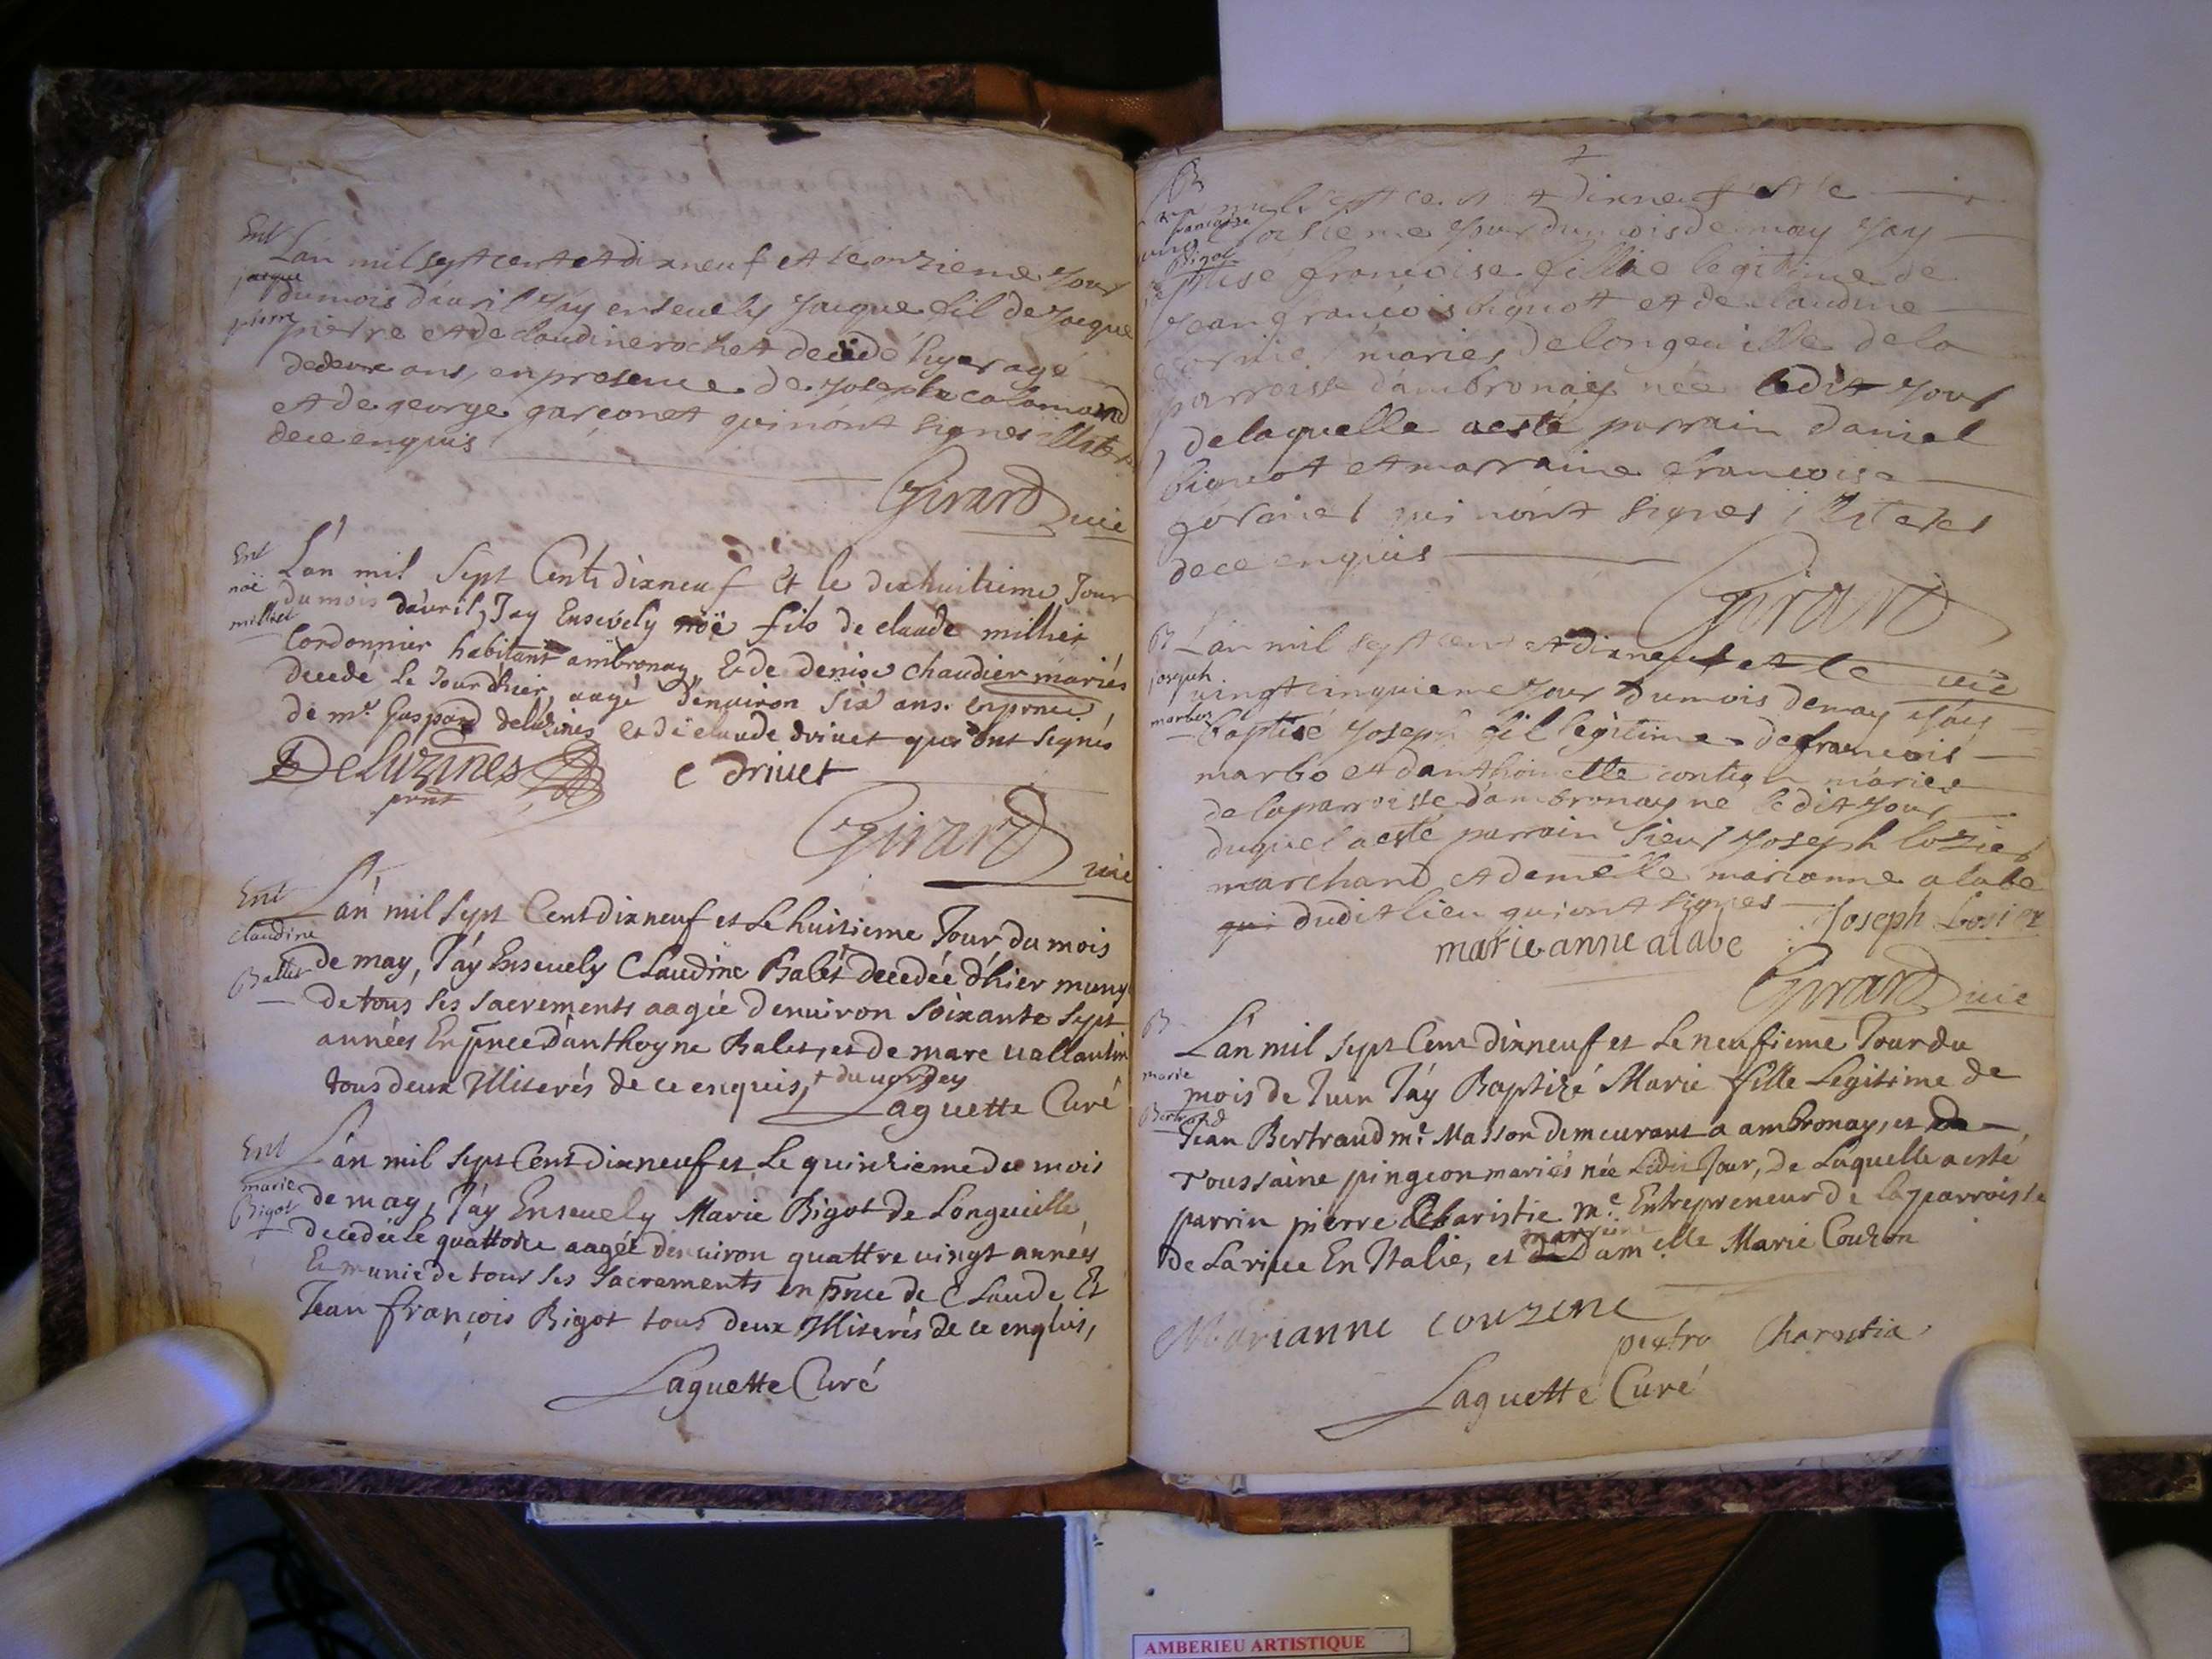 Ent
jacque
pierre
L'an mil sept cent et dixneuf et le onzieme Jour
du mois d'auril J'ay enseuely Jacque fil de Jacque
pierre et de claudine rochet decede hyer agé
de deux ans, en presence de Joseph calamard
et de george garçonet qui n'ont signes illit
de ce enquis
Girard vic
Ent
noë
milliet
L'an mil sept Cents dixneuf Et le dixhuitieme Jour
du mois d'auril, J'ay Ensevely noë fils de claude milliet
Cordonnier habitant ambronay, Et de denise chaudier mariés
decedé le Jour d'hier, aagé denuiron six ans. en pnce
de mr. Gaspard deluzines et de claude driuet qui ont signés
Deluzines
pnt
C driuet
Girard vic
Ent
claudine
Ballet
L'an mil sept Cent dixneuf et Le huitieme Jour du mois
de may, J'ay Enseuely Claudine Balet decedée d'hier muny
de tous ses sacrements aagée denuiron soixante sept
années En pnce d'anthoyne Balet, et de marc uallantin
tous deux Illiterés de ce enquis,
Laguette Curé
Ent
marie
Bigot
L'an mil sept Cent dixneuf et Le quinzieme du mois
de may, J'ay Enseuely Marie Bigot de Longueille
decedée Le quattorze aagée denuiron quattre uingt années
Et munie de tous ses Sacrements en pnce de CLaude Et
Jean françois Bigot tous deux Illiterés de ce enquis,
Laguette Curé
B
francoise
Bigot
mil sept cent et dixneuf et le
Jour du mois de may J'ay
françoise fillie legitime de
Jean françois biguot et de claudine
maries de longeuille de la
parroisse d'ambronay née ledit Jour
de laquelle a esté parrain daniel
biguot et marraine françoise
qui n'ont signes illiteres
de ce enquis
Girard
vic
B
joseph
marbo
L'an mil sept cent et dixneuf et le
uingt cinquieme Jour du mois de may J'ay
baptisé Joseph fil legitime de francois
marbo et d'anthoinette maries
de la parroisse d'ambronay ne ledit Jour
duquel a esté parrain sieur Joseph lozier
marchand et demelle marianne alabe
qui dudit lieu qui ont signes
Joseph Losier
marie anne alabe
Girard vic
B
marie
Bertrand
L'an mil sept Cent dixneuf et Le neufieme Jour du
mois de Juin J'ay Baptizé Marie fille Legitime de
Jean Bertraud mr. Masson demeurant a ambronay, et de
Toussaine pingeon mariés née Ledit Jour, de Laquelle a esté
parrin pierre Charistie Me. Entrepreneur de la parroisse
marrine
de Larive En Italie, et de Damelle Marie Couzon
Marianne couzene
pietro Charistia
Laguette Curé
AMBERIEU ARTISTIQUE